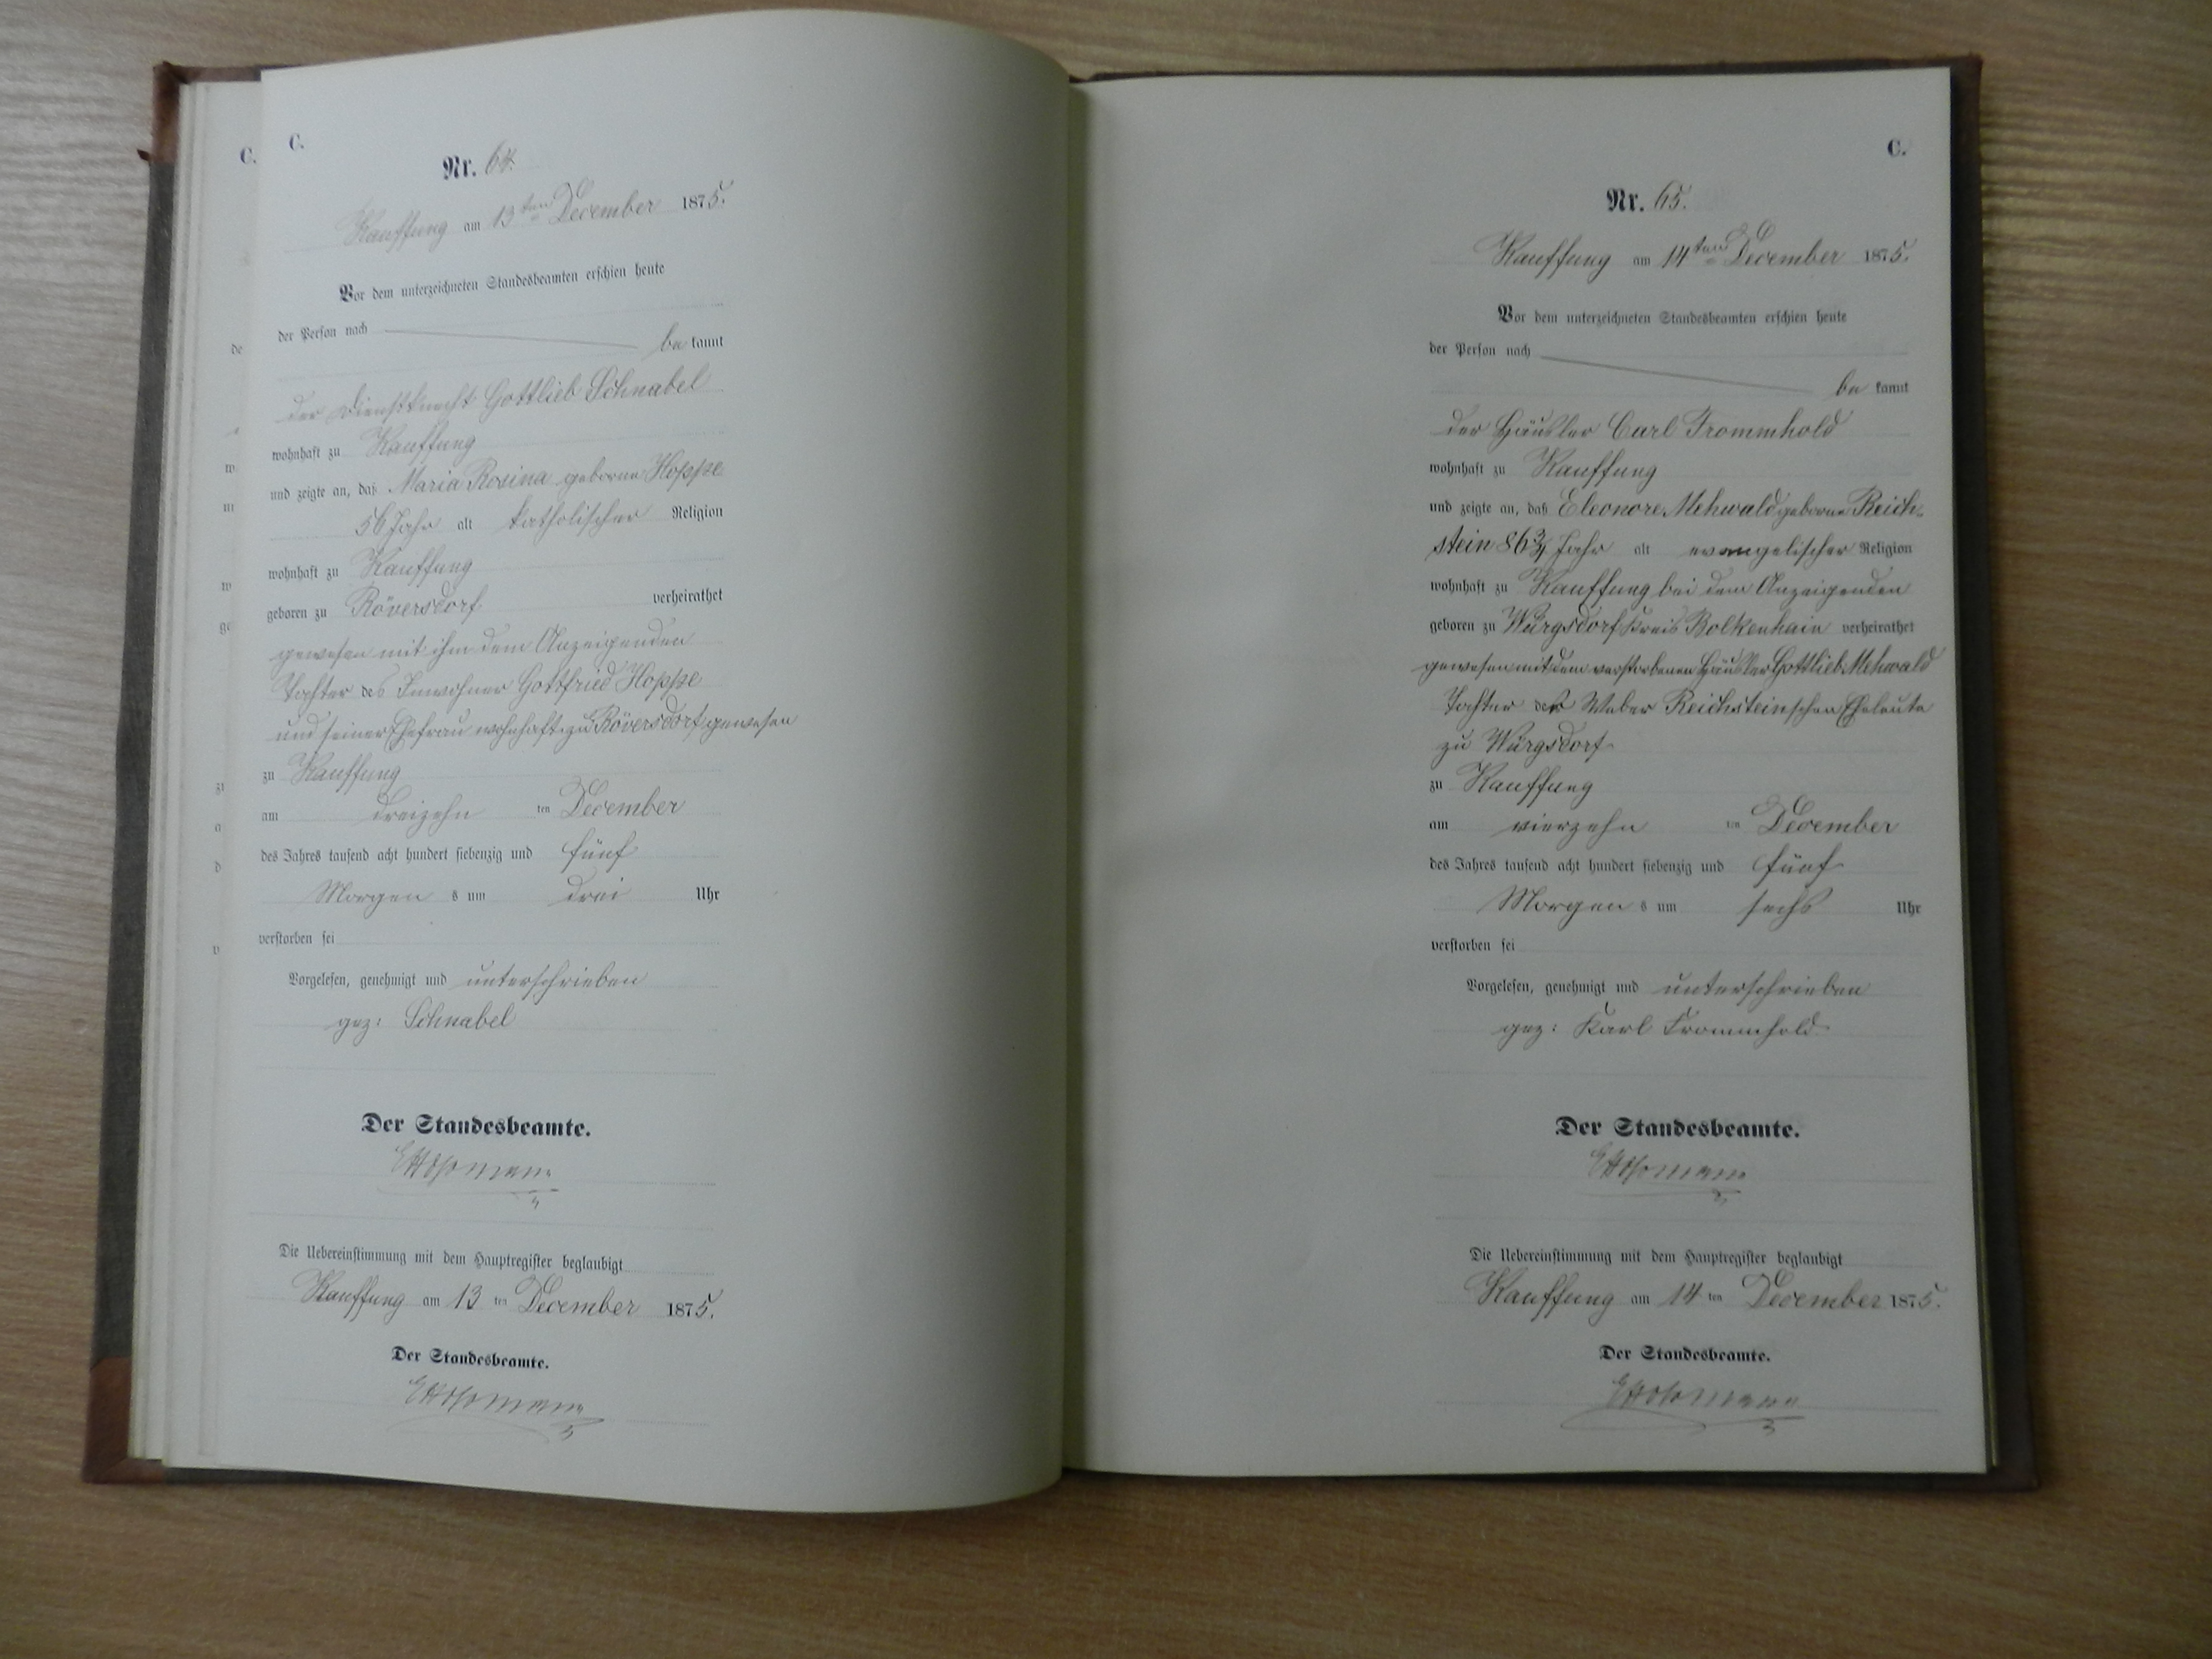 C.
C.
Nr. 64.
Kauffung am 13ten December 1875.
Vor dem unterzeichneten Standesbeamten erschien heute
der Person nach
be kannt
der Dienstknecht Gottlieb Schnabel
wohnhaft zu Kauffung
und zeigte an, daß Maria Rosina geborne Hoppe
56 Jahr alt katholischer Religion
wohnhaft zu Kauffung
geboren zu Röversdorf verheirathet
gewesen mit ihm dem Anzeigenden
Tochter des Inwohner Gottfried Hoppe
und seiner Ehefrau wohnhaft zu Röversdorf gewesen
zu Kauffung
am dreizehn ten December
des Jahres tausend acht hundert siebenzig und fünf
Morgen s um drei Uhr
verstorben sei
Vorgelesen, genehmigt und unterschrieben
gez: Schnabel
Der Standesbeamte.
Die Uebereinstimmung mit dem Hauptregister beglaubigt
Kauffung am 13 ten December 1875.
Der Standesbeamte.
C.
Nr. 65.
Kauffung am 14ten December 1875.
Vor dem unterzeichneten Standesbeamten erschien heute
der Person nach
be kannt
der Häusler Carl Frommhold
wohnhaft zu Kauffung
und zeigte an, daß Eleonore Mehwald geborne Reich-
stein 86 3/4 Jahr alt evangelischer Religion
wohnhaft zu Kauffung bei dem Anzeigenden
geboren zu Würgsdorf Kreis Bolkenhain verheirathet
gewesen mit dem verstorbenen Häusler Gottlieb Mehwald
Tochter der Weber Reichsteinschen Eheleute
zu Würgsdorf
zu Kauffung
am vierzehn ten December
des Jahres tausend acht hundert siebenzig und fünf
Morgen s um sechs Uhr
verstorben sei
Vorgelesen, genehmigt und unterschrieben
gez: Karl Frommhold
Der Standesbeamte.
Die Uebereinstimmung mit dem Hauptregister beglaubigt
Kauffung am 14 ten December 1875.
Der Standesbeamte.